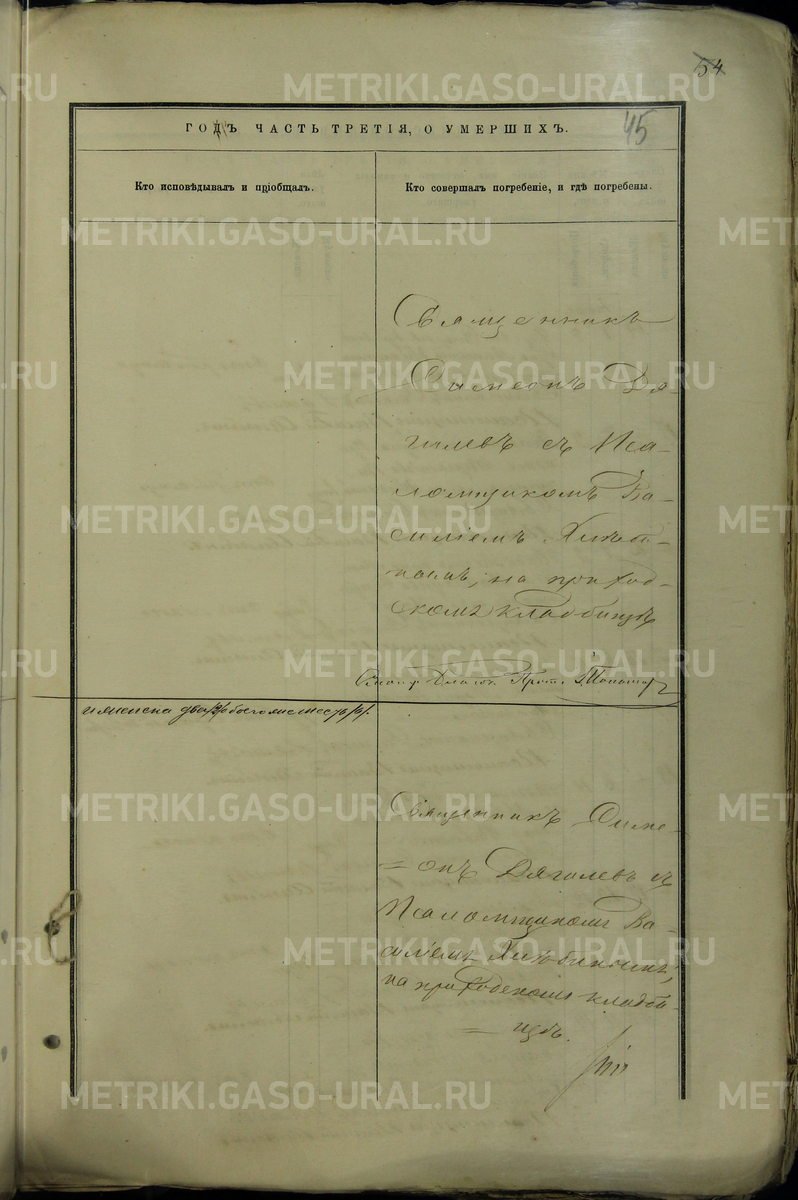 54
45
ГОДЪ ЧАСТЬ ТРЕТІЯ, О УМЕРШИХЪ.
Кто исповѣдывалъ и пріобщалъ.
Кто совершалъ погребеніе, и гдѣ погребены.
Священникъ
Симеонъ Дя-
гилевъ съ Пса-
ломщикомъ Ва-
силіемъ
на приход-
скомъ кладбищѣ
женска два /2/ обоего
Священникъ Симе-
=онъ Дягилевъ съ
Псаломщикомъ Ва-
силіемъ
на приходскомъ кладби-
=щѣ.
METRIKI.GASO-URAL.RU